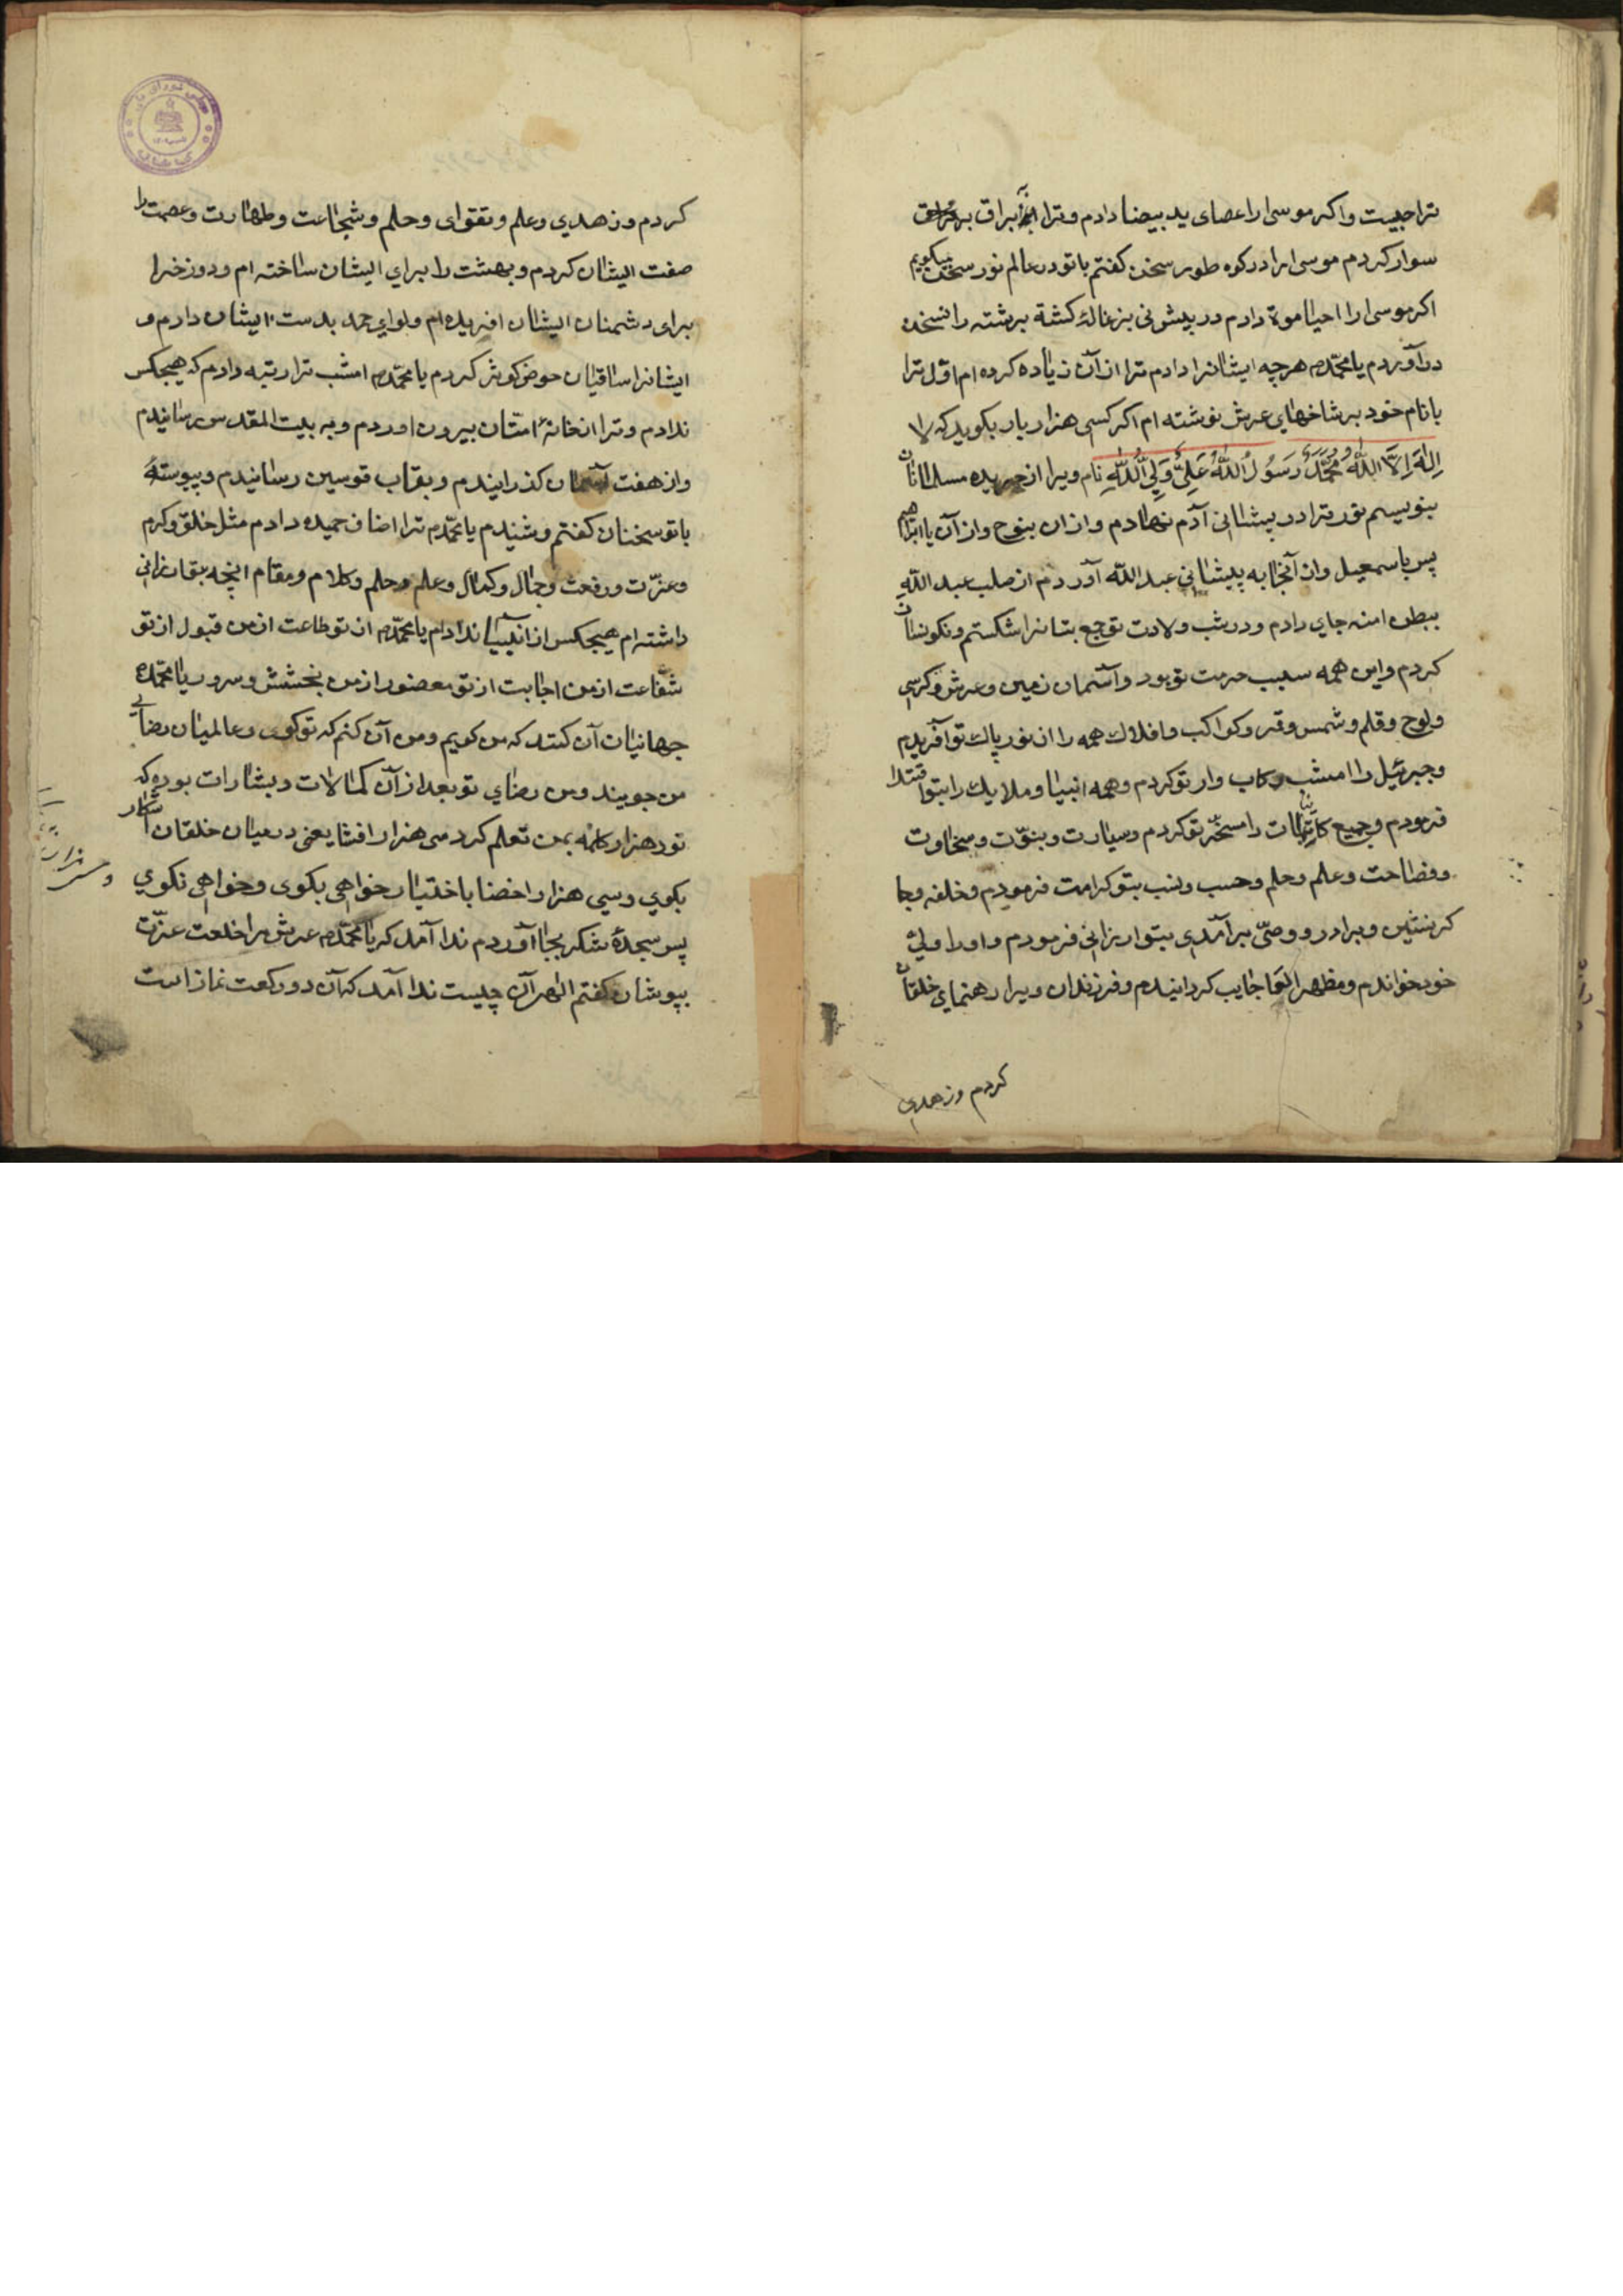 تراجیبت واکر موسی را عصای ید بیضا دادم و ترا براق برق
سوار کردم موسی را در کوه طور سخن کفتم با تو در عالم نور سخن میکویم
اکر موسی را احیا موة دادم در پیش نی بزغالهٔ کشتهٔ برشته را نسخن
در آوردم یا محمّد هرچه ایشانرا دادم ترا از آن زیاده کرده ام اوّل ترا
با نام خود بر شاخهای عرش نوشته ام اکر کسی هزار بار بکوید که لا
اِلٰهَ اِلَّا اللّٰهُ مُحَمَّدٌ رَسُولُ اللّٰهِ عَلِیٌّ وَلِیُّ اللّٰهِ نام ویرا از جریده مسلمانان
بنویسم نور ترا در پیشانی آدم نهادم و از ان بنوح و از آن با ابراهیم
پس باسمعیل و از آنجا به پیشانی عبد اللّه آوردم از صلب عبد اللّه
ببطن امنه جای دادم و در شب ولادت تو جمع بتانرا شکستم و نکونسار
کردم و این همه سبب حرمت تو بود و آسمان زمین و عرش و کرسی
و لوح و قلم و شمس و قمر و کواکب و افلاک همه را از نور پاک تو آفریدم
و جبرئیل را امشب رکاب دار تو کردم و همه انبیا و ملایک را بتو اقتدا
فرمودم و جمیع کاینات را مسخّر تو کردم و سیارت و بنوّت و سخاوت
و فصاحت و علم و حلم و حسب و نسب بتو کرامت فرمودم و خلفه و جا
کرنشین و برادر و وصّی بر آمدی بتو ارزانی فرمودم و او را ولیّ
خود خواندم و مظهر العجایب کردانیدم و فرزندان ویرا رهنمای خلقان
کردم و زهدی
کردم و زهدی و علم و تقوای و حلم و شجاعت و طهارت و عصمت را
صفت ایشان کردم و بهشت را برای ایشان ساخته ام و دوزخرا
برای دشمنان ایشان افریده ام و لوای حمد بدست ایشان دارم و
ایشانرا ساقیان حوض کوثر کردم یا محمّد امشب ترا رتبه دادم که هیچکس
ندادم و ترا از خانهٔ امّتان بیرون اوردم و به بیت المقدس رسانیدم
و از هفت آسمان کذرانیدم و بقاب قوسین رسانیدم و پیوسته
با تو سخنان کفتم و شنیدم یا محمّد ترا اضاف حمیده دادم مثل خلق و کرم
و عزّت و رفعت و جمال و کمال و علم و حلم و کلام و مقام انچه بتو ارزانی
داشته ام هیچکس از انبییا ندادم یا محمّد از تو طاعت از من قبول از تو
شفاعت از من اجابت از تو معضور از من بخشش و سرور یا محمّد
جهانیان آن کنند که من کویم و من آن کنم که تو کوی و عالمیان رضای
من جویند و من رضای تو بعد از آن کمالات و بشارات بود که
نود هزار کلمه بمن تعلم کرد سی هزار را افشا یعنی در میان خلقان آشکار
بکوی و سی هزار را خضا باختیار خواهی بکوی و خواهی نکوی
پس سجدهٔ شکر بجا آوردم ندا آمد که یا محمّد عرش مرا خلعت عزّت
بپوشان کفتم الهی آن چیست ندا آمد که آن دو رکعت نماز است